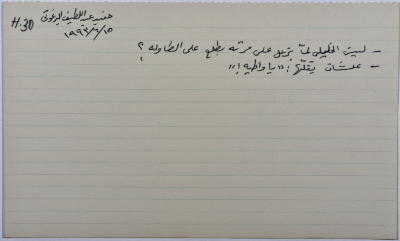 H.30
هنيه عبد اللطيف البرغوثي
١٩٩٦/٦/١٥
- ليش الخليلي لمّا يزعل على مرته بطلع على الطاولة؟
- علشان يقلّها: "يا واطيه!"